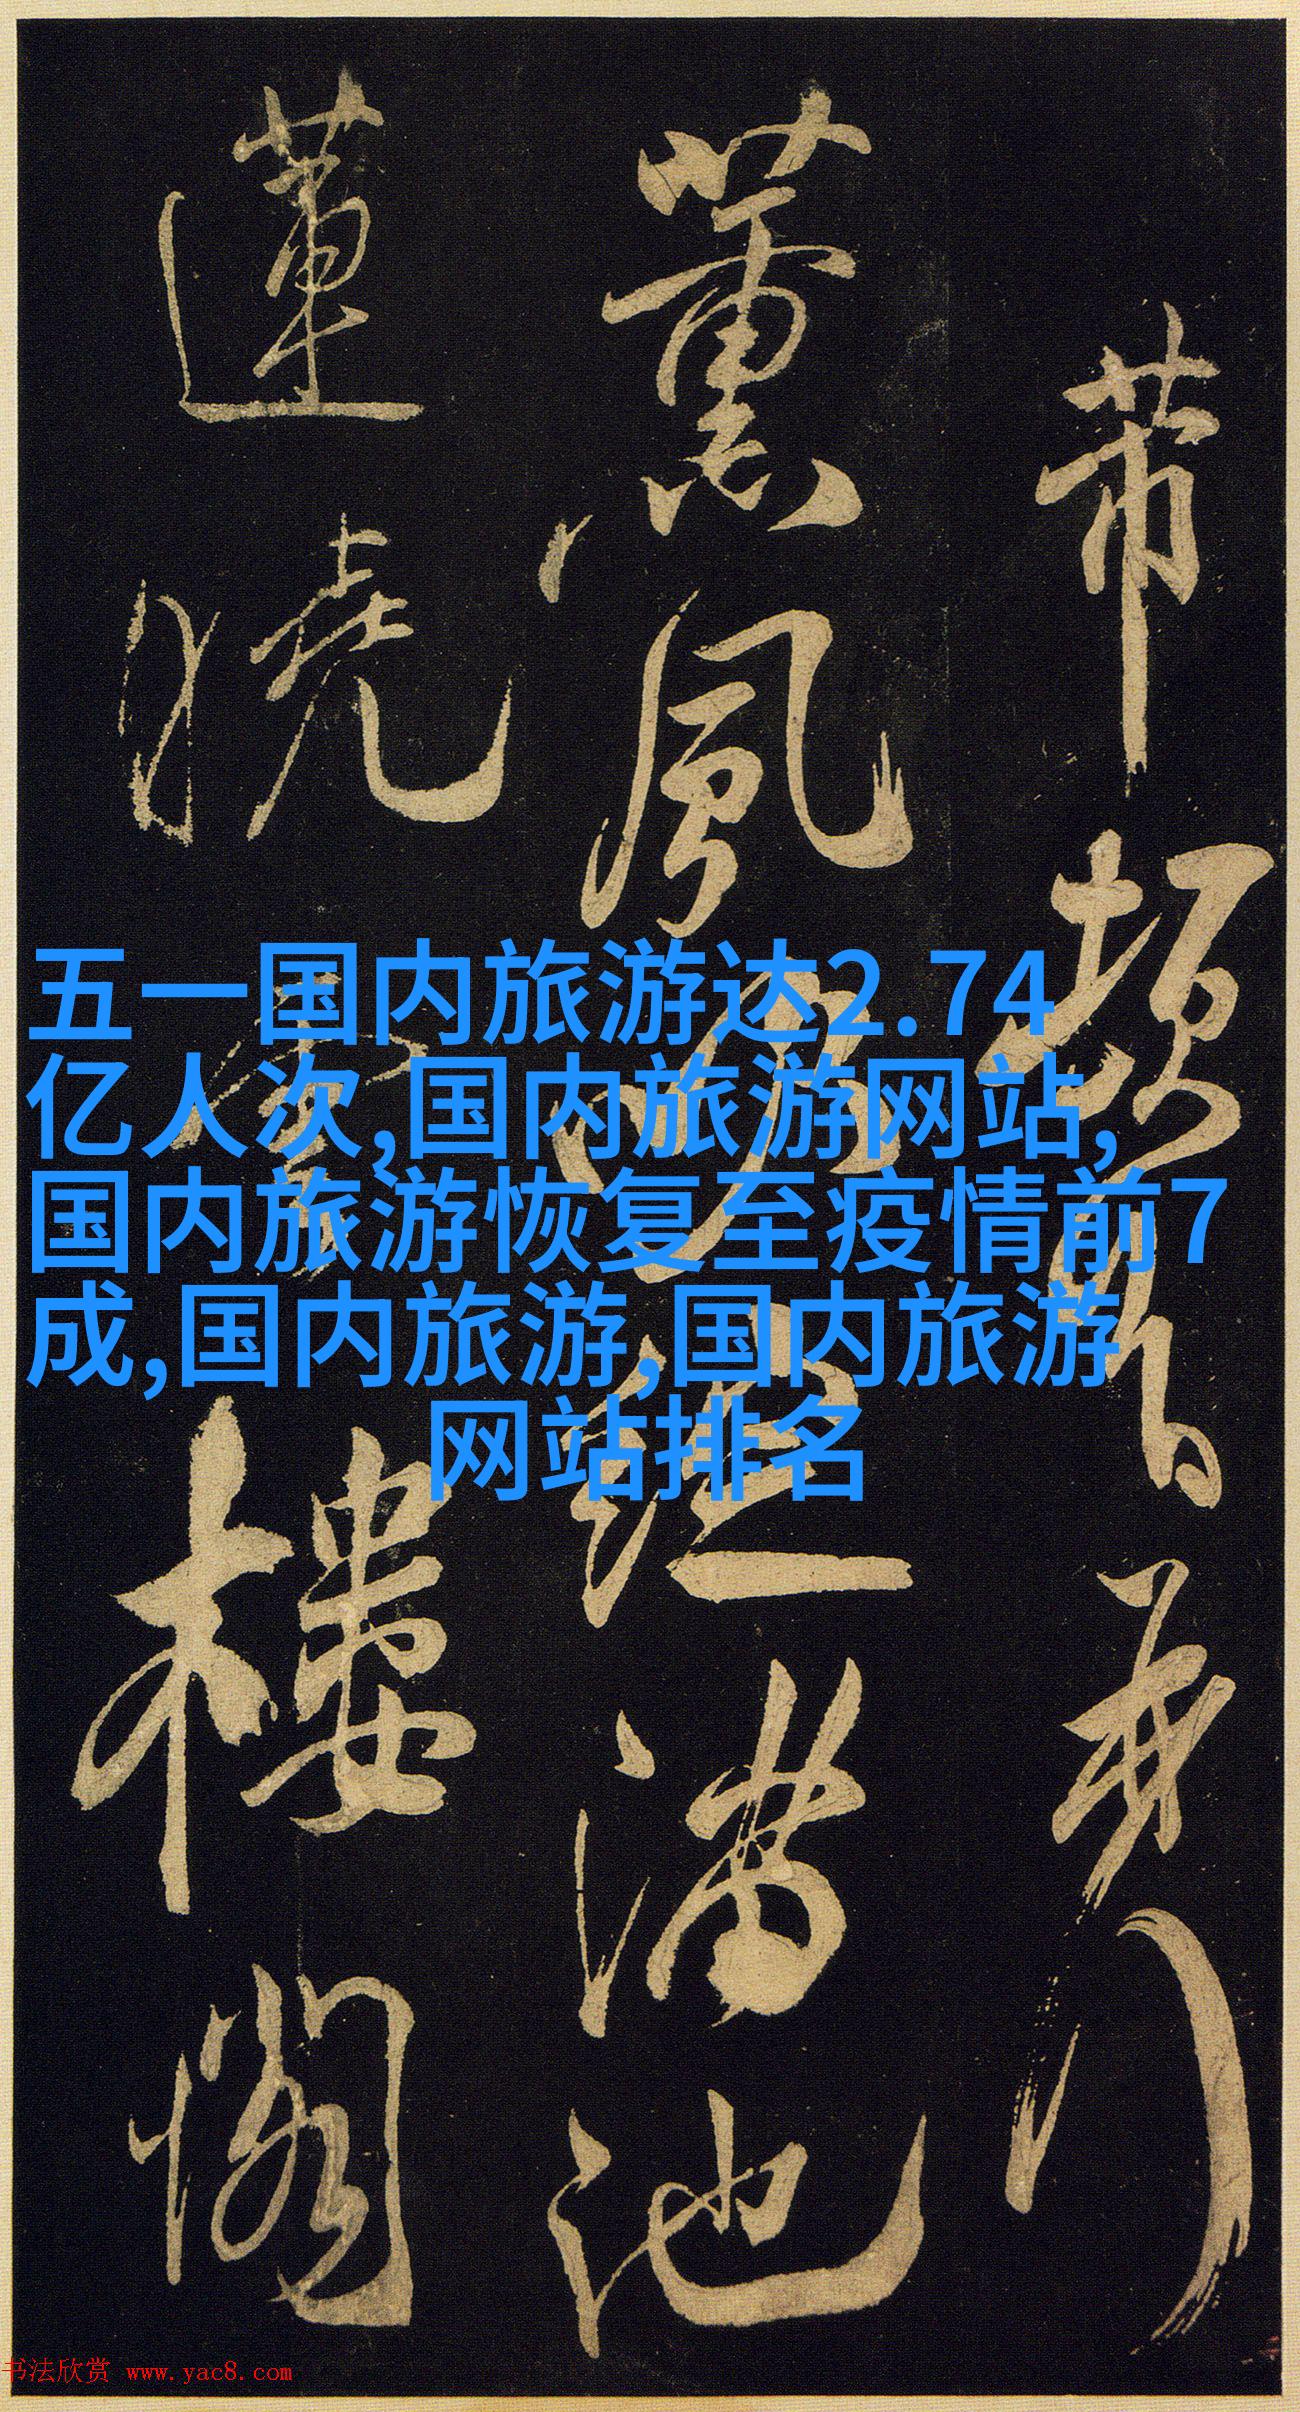 五一国内旅游达2.74
亿人次,国内旅游网站,
国内旅游恢复至疫情前7
成,国内旅游,国内旅游
网站排名
薰風滿池
蓮曉樓閣
书法欣赏 www.yac8.com